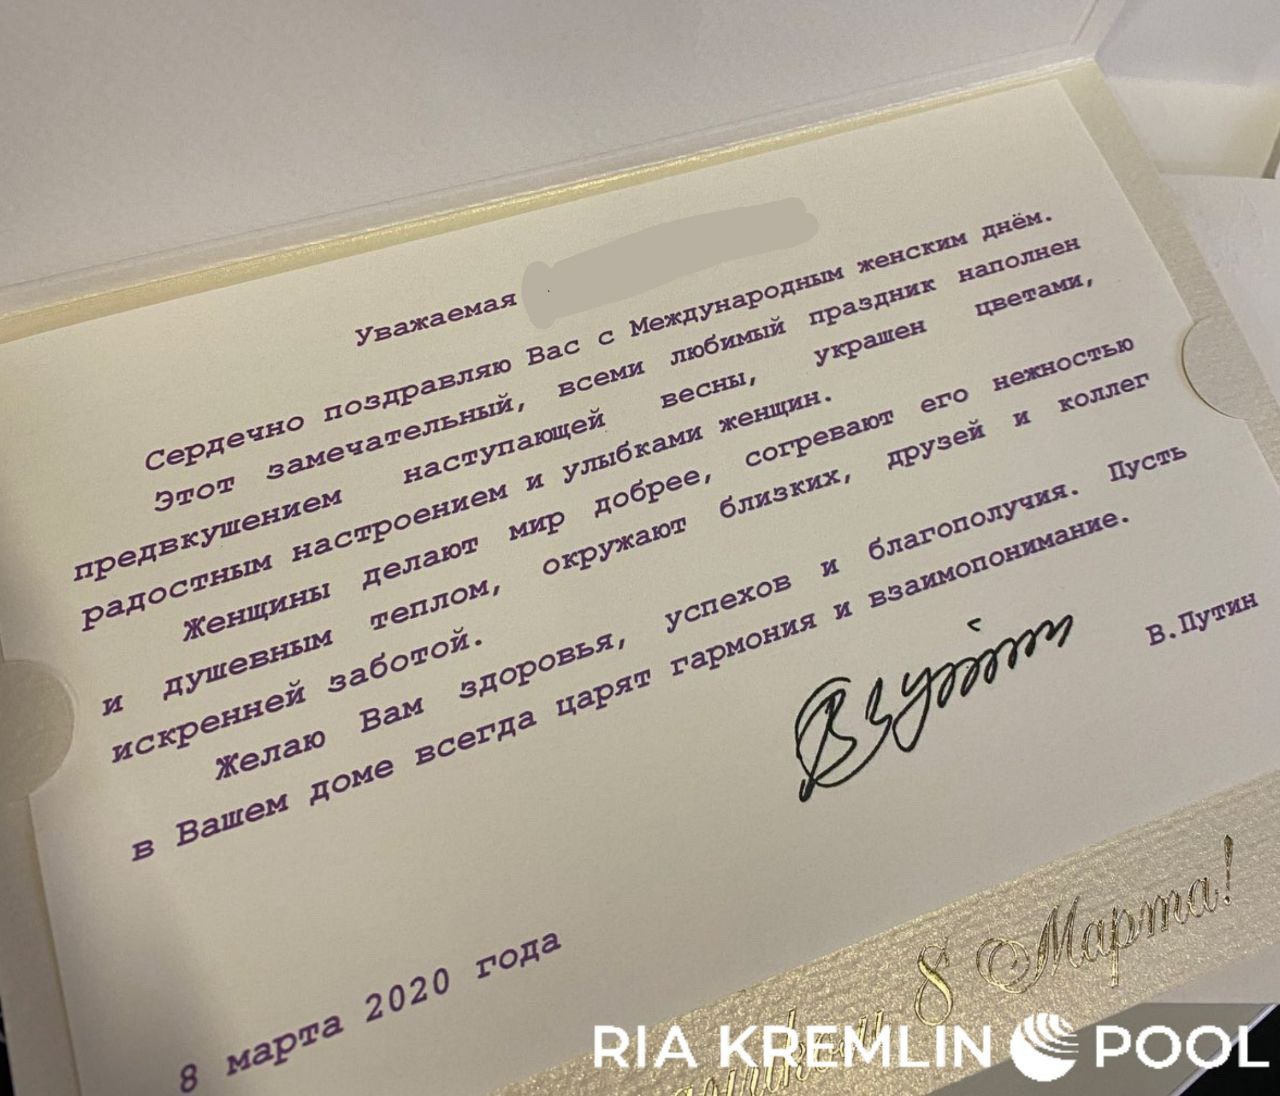 Уважаемая
Сердечно поздравляю Вас с Международным женским днём.
Этот замечательный, всеми любимый праздник наполнен
предвкушением наступающей весны, украшен цветами,
радостным настроением и улыбками женщин.
Женщины делают мир добрее, согревают его нежностью
и душевным теплом, окружают близких, друзей и коллег
искренней заботой.
Желаю Вам здоровья, успехов и благополучия. Пусть
в Вашем доме всегда царят гармония и взаимопонимание.
В.Путин
8 марта 2020 года
8 Марта!
RIA KREMLIN POOL